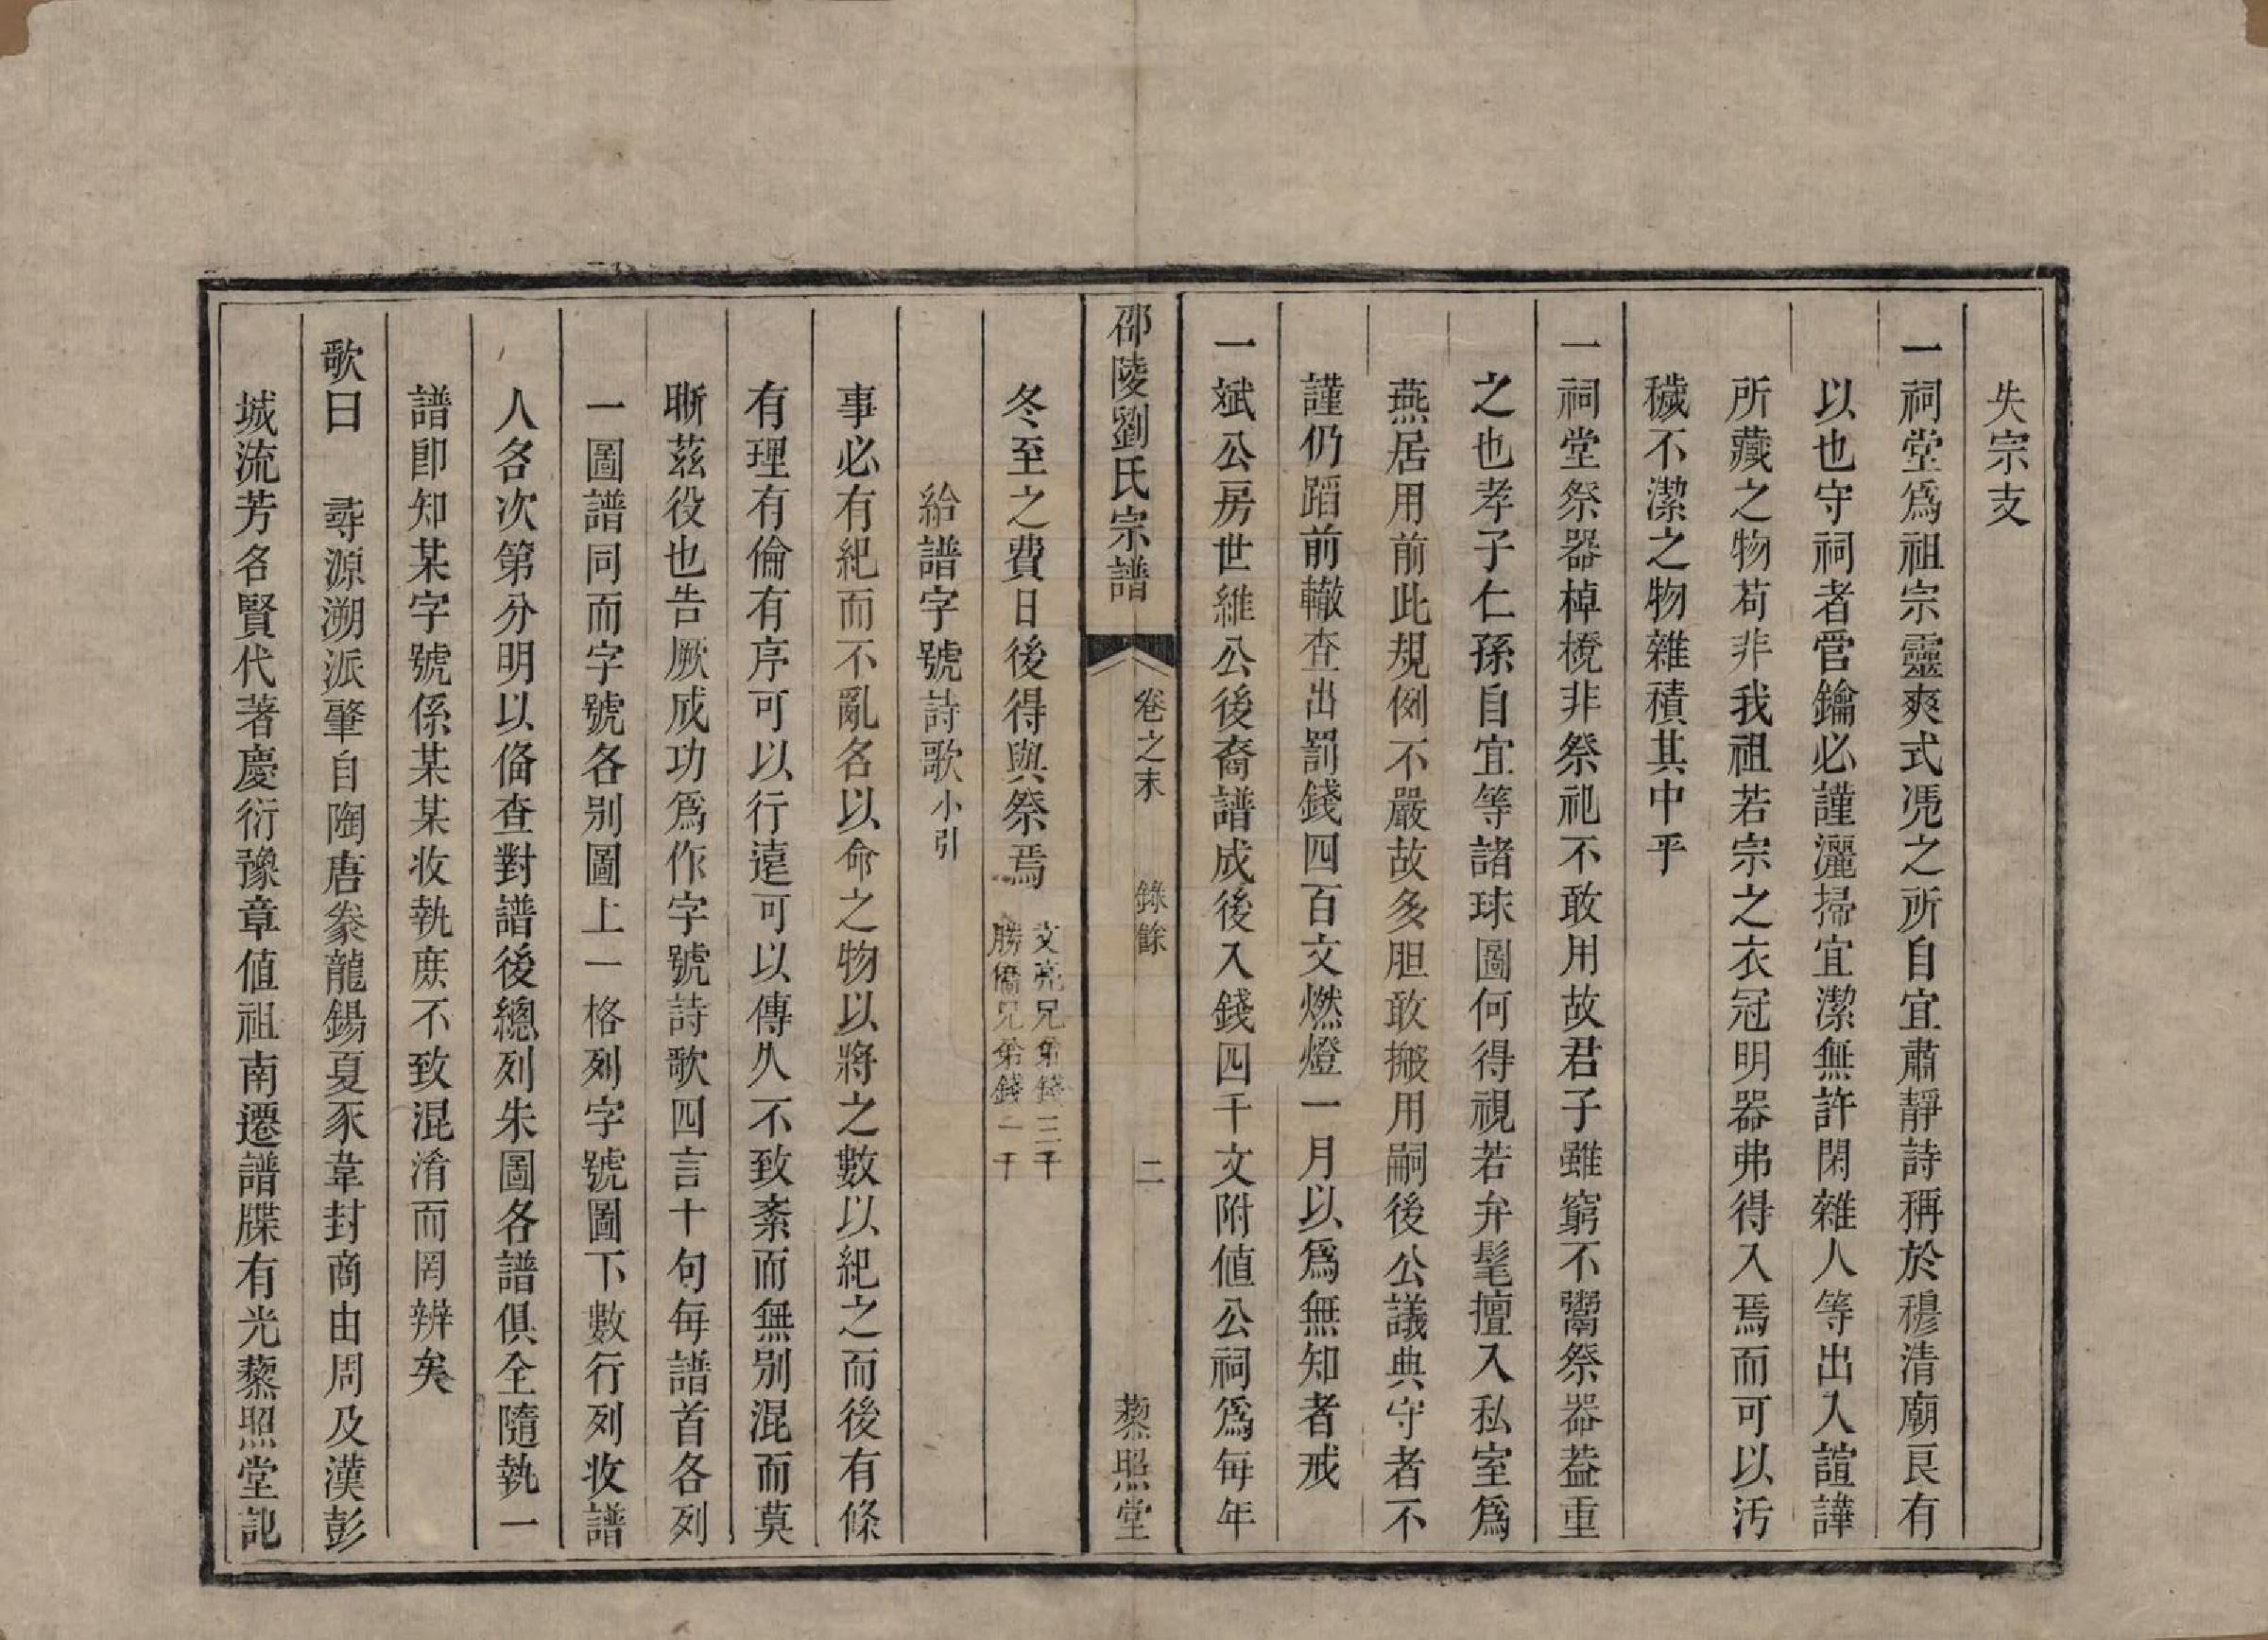 失宗支
一祠堂爲祖宗靈爽式凴之所自宜肅靜詩稱於穆清廟良有
以也守祠者管鑰必謹灑掃宜潔無許閑雜人等出入諠譁
所藏之物苟非我祖若宗之衣冠明器弗得入焉而可以汚
穢不潔之物雜積其中乎
一祠堂祭器棹櫈非祭祀不敢用故君子雖窮不鬻祭器葢重
之也孝子仁孫自宜等諸球圖何得視若弁髦擅入私室爲
燕居用前此規例不嚴故多胆敢搬用嗣後公議典守者不
謹仍蹈前轍查出罰錢四百文燃燈一月以爲無知者戒
一斌公房世維公後裔譜成後入錢四千文附値公祠爲每年
邵陵劉氏宗譜
卷之末
錄餘
二
藜照堂
冬至之費日後得與祭焉
文亮兄弟錢三千
勝僑兄弟錢一千
給譜字號詩歌小引
事必有紀而不亂名以命之物以將之數以紀之而後有條
有理有倫有序可以行遠可以傳久不致紊而無別混而莫
晣茲役也告厥成功爲作字號詩歌四言十句每譜首各列
一圖譜同而字號各別圖上一格列字號圖下數行列收譜
人各次第分明以俻查對譜後總列朱圖各譜俱全隨執一
譜卽知某字號係某某收執庶不致混淆而罔辨矣
歌曰 尋源溯派肇自陶唐豢龍錫夏豕韋封商由周及漢彭
城流芳名賢代著慶衍豫章値祖南遷譜牒有光藜照堂記